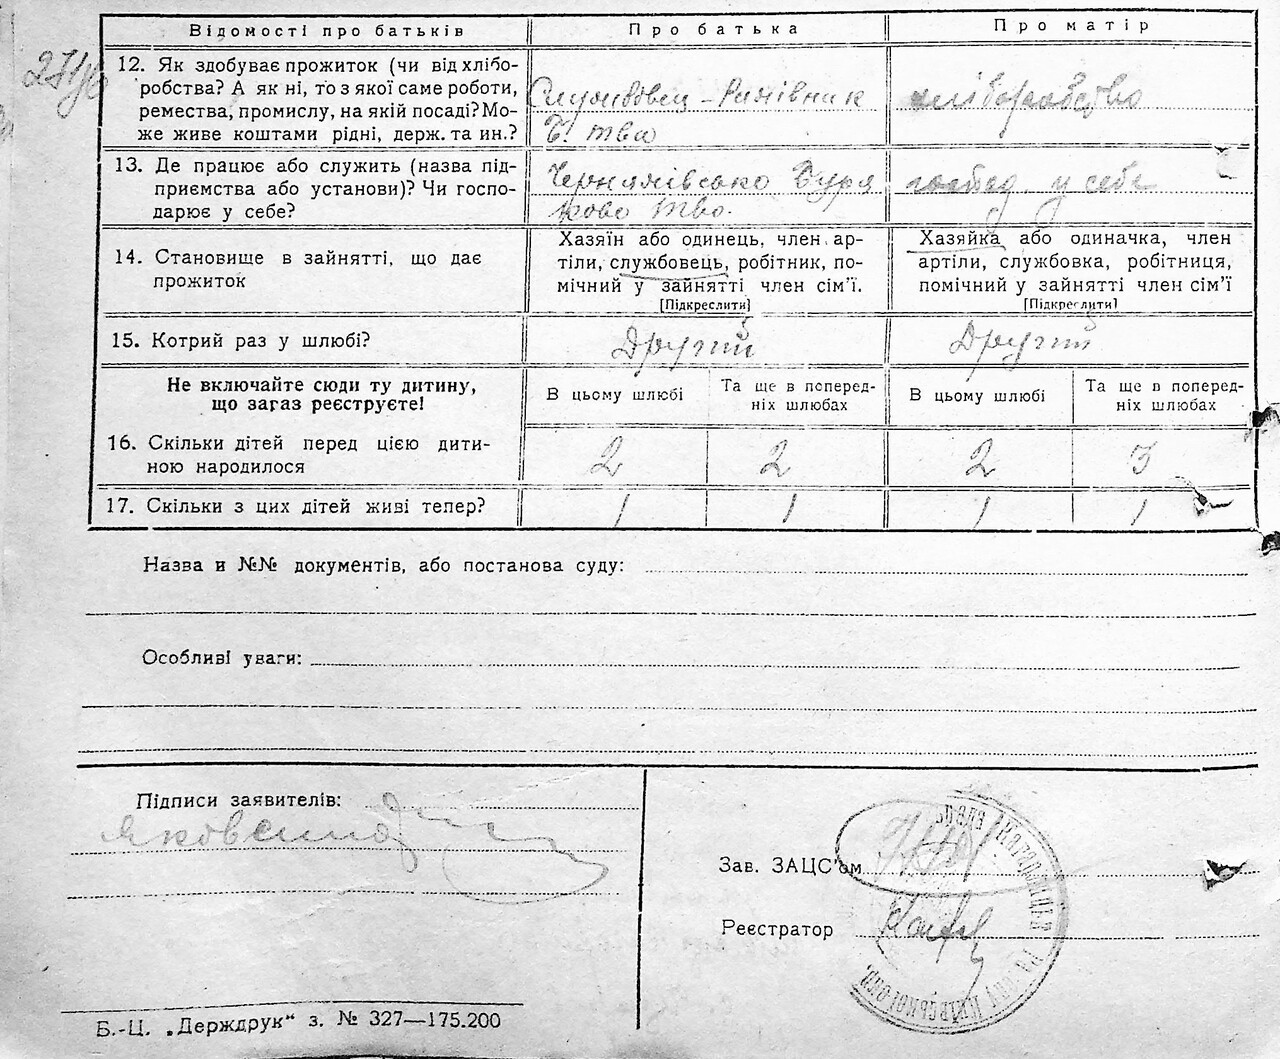 Відомості про батьків
Про батька
Про матір
12. Як здобуває прожиток (чи від хлібо-
робства? А як ні, то з якої саме роботи,
ремества, промислу, на якій посаді? Мо-
же живе коштами рідні, держ. та ин.?
Службовец - Рахівник
Б. тва
хліборобство
13. Де працює або служить (назва під-
приємства або установи)? Чи госпо-
дарює у себе?
Буря
ково тво.
господ. у себе
14. Становище в зайнятті, що дає
прожиток
Хазяїн або одинець, член ар-
тіли, службовець, робітник, по-
мічний у зайнятті член сім'ї.
[Підкреслити]
Хазяйка або одиначка, член
артіли, службовка, робітниця,
помічний у зайнятті член сім'ї
[Підкреслити]
15. Котрий раз у шлюбі?
Другий
Другий
Не включайте сюди ту дитину,
що загаз реєструєте!
В цьому шлюбі
Та ще в поперед-
ніх шлюбах
В цьому шлюбі
Та ще в поперед-
ніх шлюбах
16. Скільки дітей перед цією дити-
ною народилося
2
2
2
3
17. Скільки з цих дітей живі тепер?
1
1
1
1
Назва и №№ документів, або постанова суду:
Особливі уваги:
Підписи заявителів:
Зав. ЗАЦС'ом
Реєстратор
Б.-Ц. „Держдрук" з. № 327—175.200